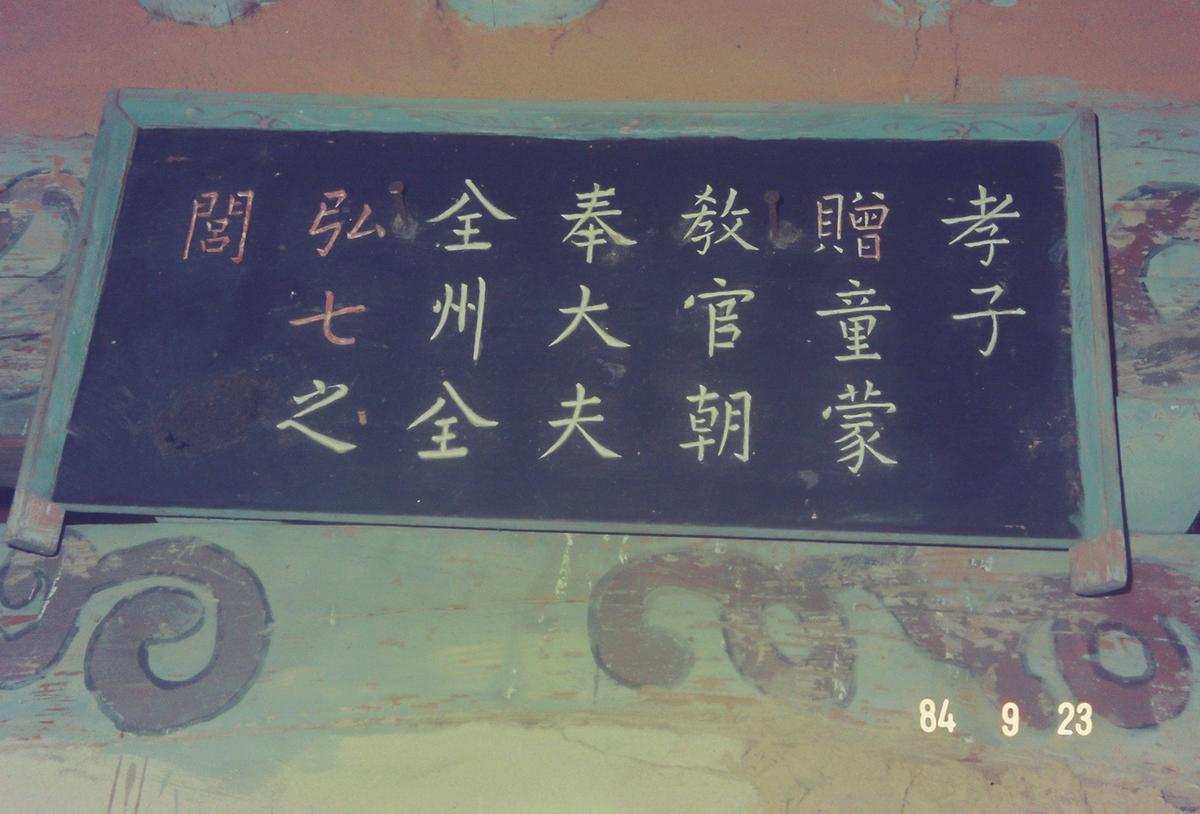 孝子
贈童蒙
教官朝
奉大夫
全州全
弘七之
閭
84 9 23